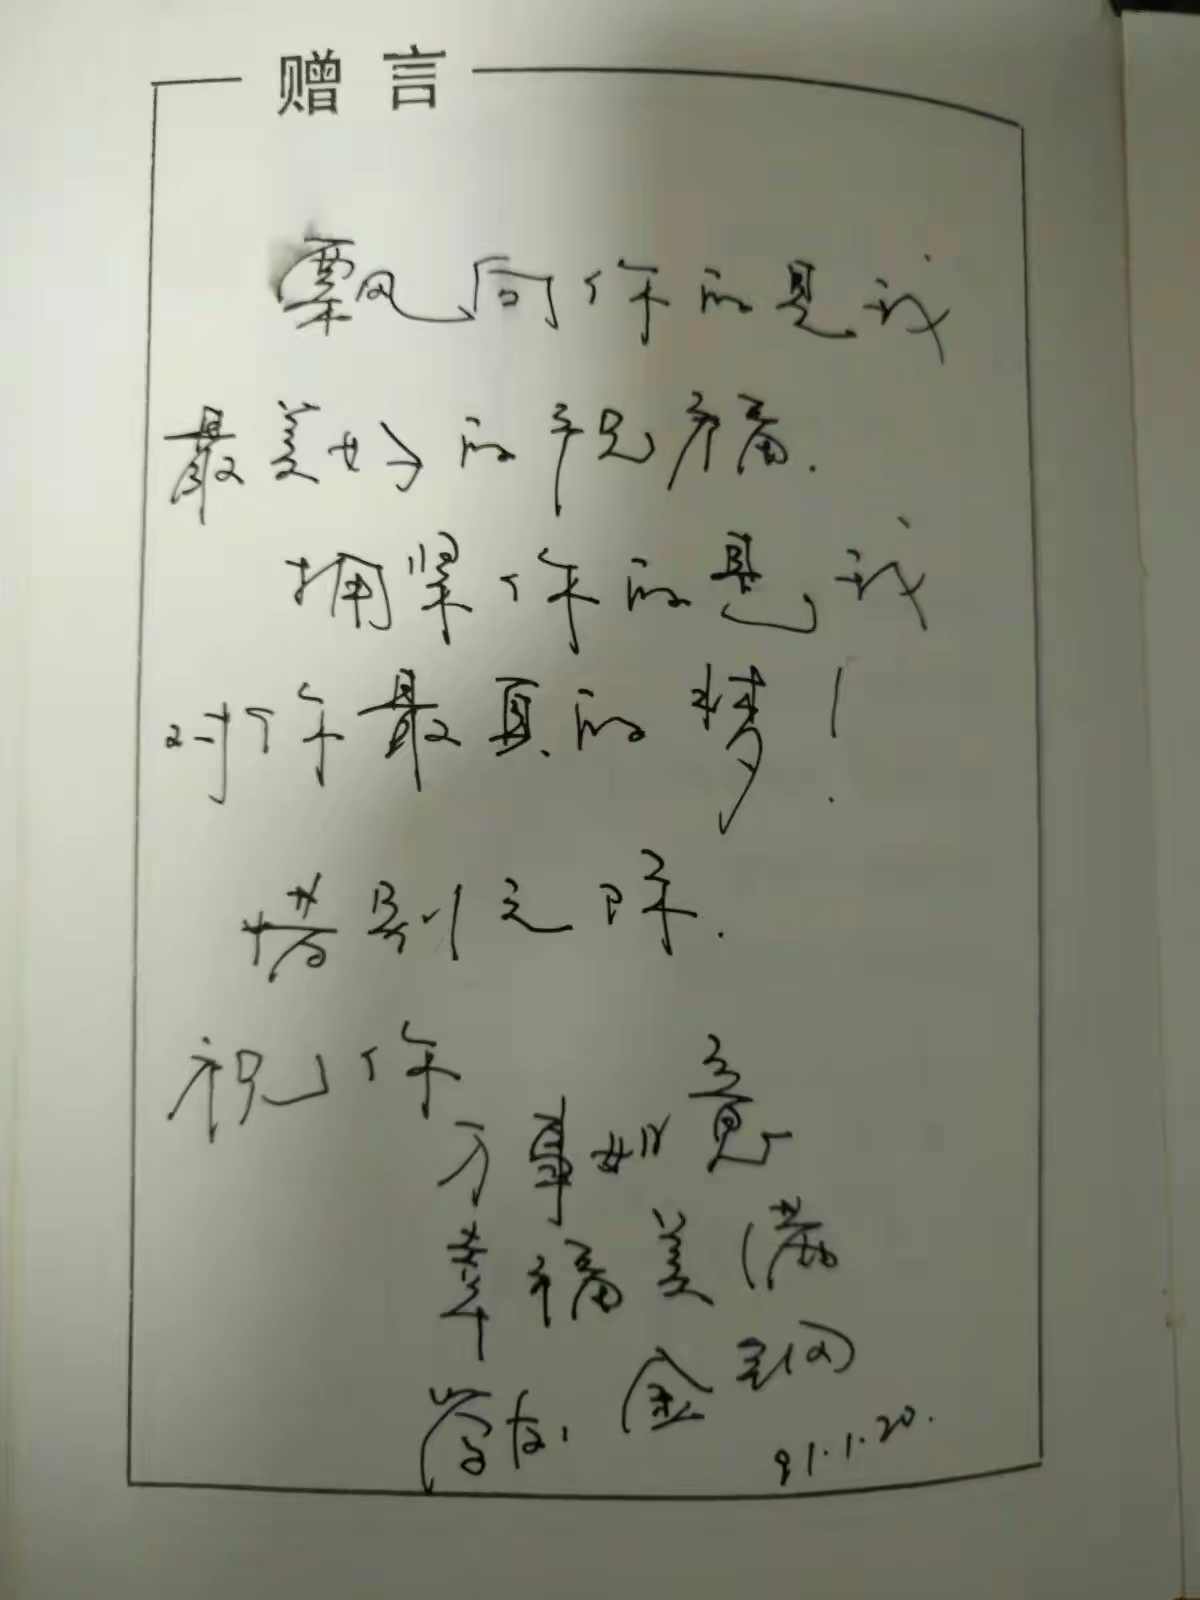 赠言
飘向你的是我
最美好的祝福.
拥紧你的是我
对你最真的情!
惜别之际.
祝你
万事如意
幸福美满
学友: 金
91.1.20.